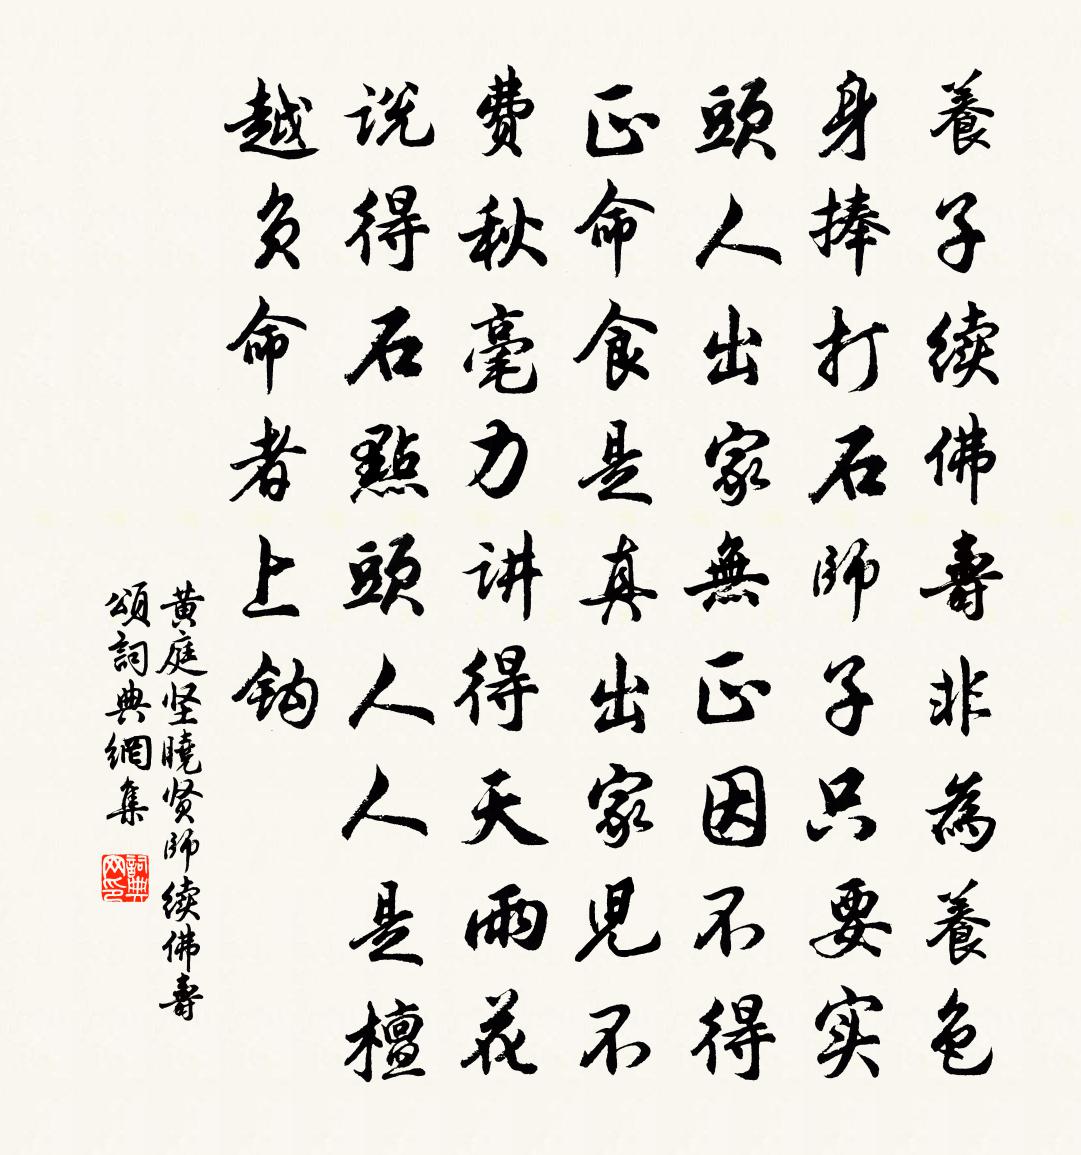 養子续佛壽非為養色
身捧打石師子只要实
頭人出家無正因不得
正命食是真出家児不
費秋毫力讲得天雨花
说得石點頭人人是檀
越负命者上钩
黄庭坚曉贤師续佛壽
頌詞典網集
詞典
网印